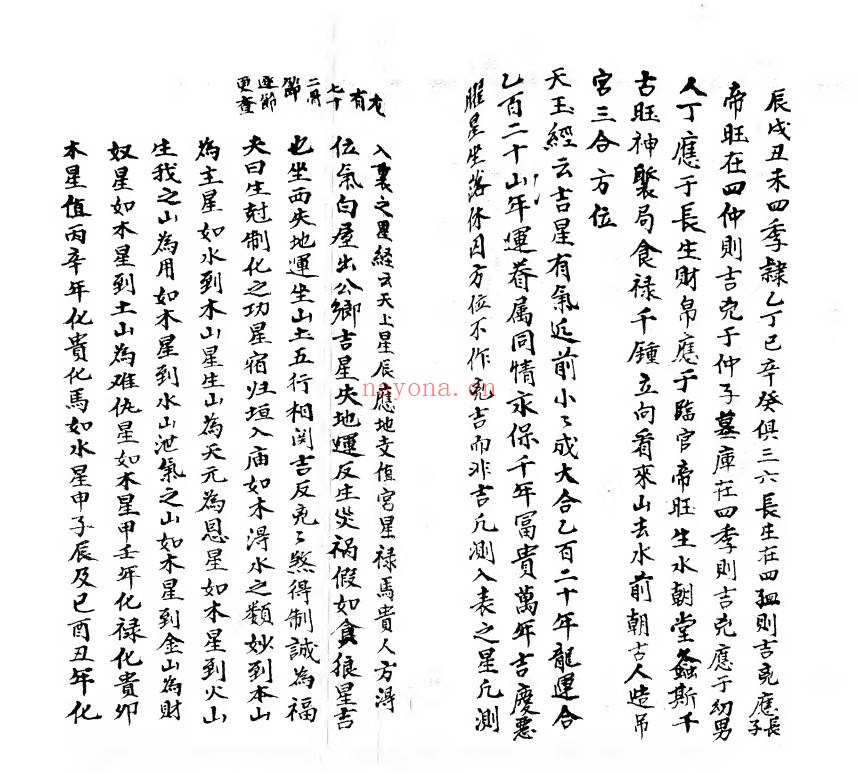 辰戌丑未四季隸乙丁己辛癸俱三六長生在四孟則吉兇應長子
帝旺在四仲則吉兇于仲子墓庫在四季則吉兇應于幼男
人丁應于長生財帛應于臨官帝旺生水朝堂螽斯千
古旺神聚局食禄千鍾立向看來山去水前朝古人造吊
宮三合方位
天玉經云吉星有氣近前小〻成大合乙百二十年龍運合
乙百二十山年運眷属同情永保千年冨貴萬年吉慶惡
曜星坐落休囚方位不作兇吉而非吉凡測入表之星凡測
尤有七十二局節逐節更查
入裏之星経云天上星辰應地支值宮星禄馬貴人方淂
位氣白屋出公鄉吉星失地運反生災禍假如貪狼星吉
也坐西失地運坐山土五行相関吉反兇〻煞得制誠為福
夫曰生尅制化之功星宿归垣入庙如木淂水之類妙到本山
為主星如水到木山星生山為天元為恩星如木星到火山
生我之山為用如木星到水山泄氣之山如木星到金山為財
奴星如木星到土山為难仇星如木星甲壬年化禄化貴卯
木星值丙辛年化貴化馬如水星申子辰及巳酉丑年化
nayona.cn